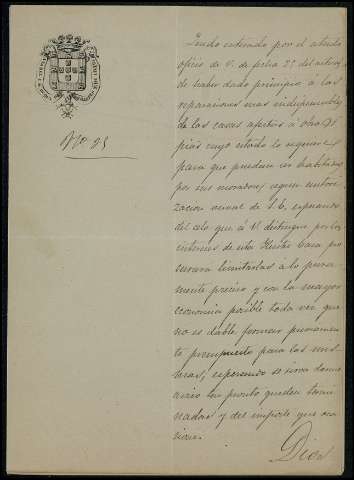 Nº 95
Quedo enterado por el atento
oficio de V. de fecha 25 del actual
de haber dado principio á las
reparaciones mas indispensables
de las casas afectas á obras
pias cuyo estado lo requiere
para que puedan ser habitadas
por sus moradores segun autori-
zacion verbal de S. E. esperando
del celo que á V. distingue por los
intereses de esta Ilustre Casa pro
curará limitarlas á lo pura
mente preciso y con la mayor
economia posible toda vez que
no es dable formar previamen
te presupuesto para las mis-
mas, esperando se sirva darme
aviso tan pronto queden termi
nadas y del importe que oca
sionen.
Dios